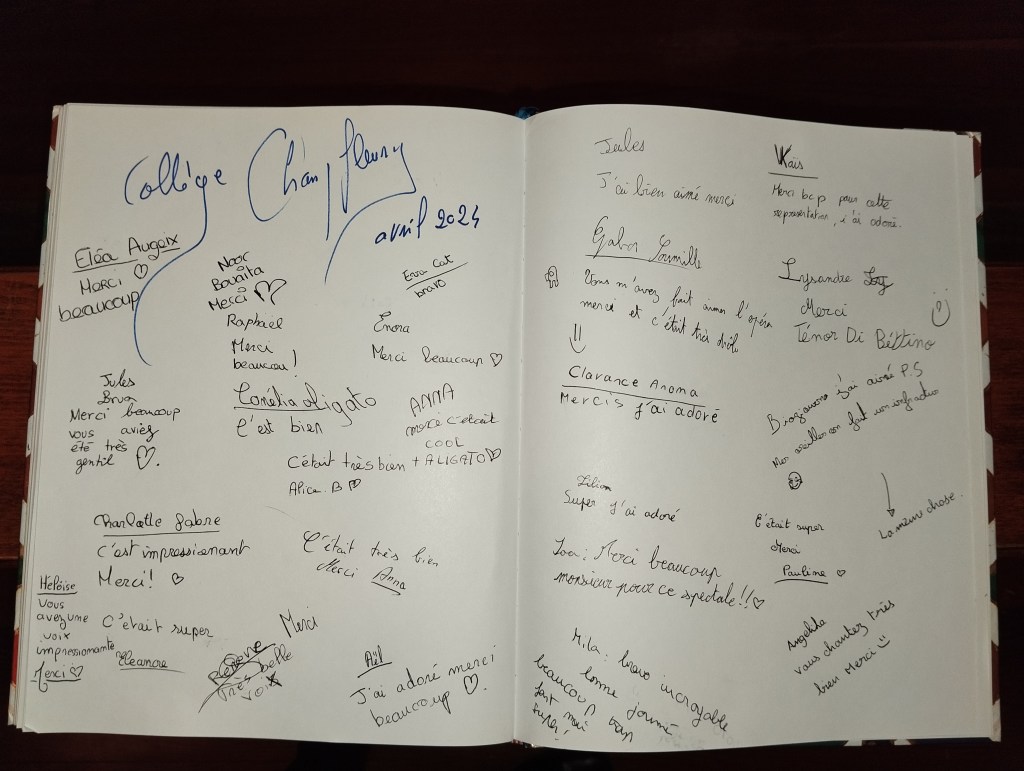 Collège Champfleury
avril 2024
Eléa Augeix
Merci ♡
beaucoup
Noor
Bouaita
Merci ♡
Eva Cat
bravo
Raphaël
Merci
beaucou !
Enora
Merci beaucoup ♡
Jules
Brun
Merci beaucoup
vous aviez
été très
gentil ♡.
Coralia aligato
C'est bien
ANNA
merci c'était
COOL
C'était très bien + ALIGATO ♡
Alice. B ♡
Charlotte Fabre
C'est impressionant
Merci! ♡
C'était très bien
Merci Anna
Héloïse
Vous
avez une
voix
impressionante
Merci ♡
C'était super
Eleanore
Merci
Très belle
voix
Aël
J'ai adoré merci
beaucoup ♡.
Jules
J'ai bien aimé merci
Kaïs
Merci bcp pour cette
représentation, j'ai adoré.
Gabor
Vous m'avez fait aimer l'opéra
merci et c'était très drôle
Lysandre
Merci
Ténor Di Bettino
Clarance Anoma
Mercis j'ai adoré
j'ai aimé P.S
Mes oreilles on fait
La même chose.
Lilian
Super j'ai adoré
C'était super
Merci
Pauline ♡
Merci beaucoup
monsieur pour ce spectale!! ♡
Mila : bravo incroyable
beaucoup
bonne journé
super!
Angelila
vous chantez très
bien Merci